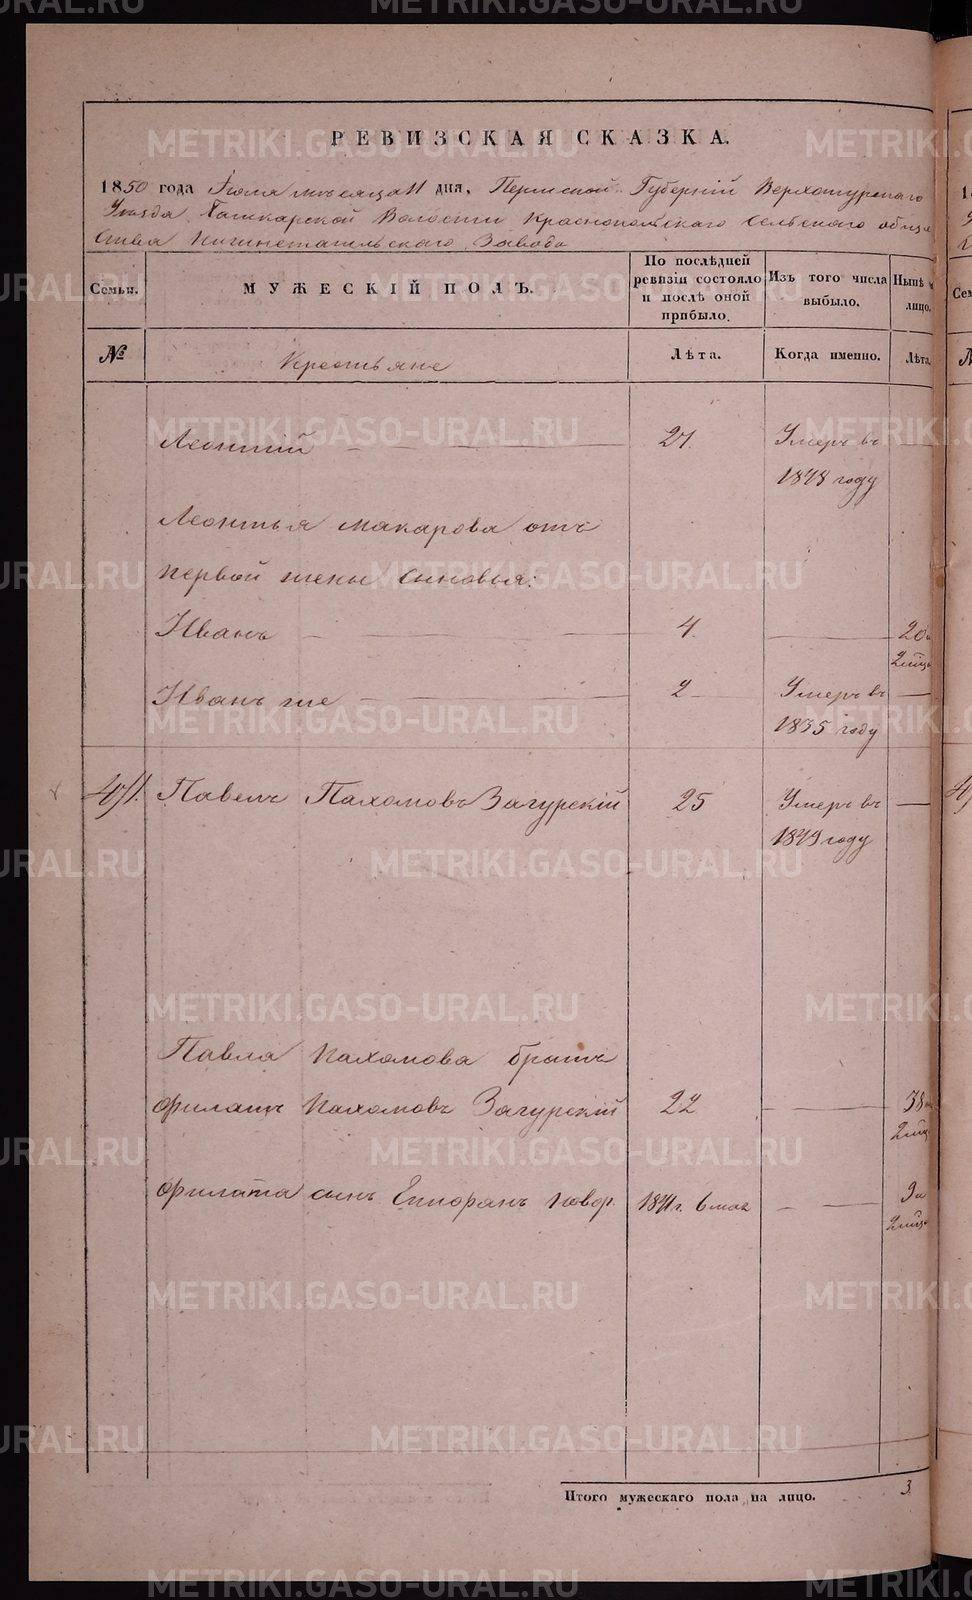 РЕВИЗСКАЯ СКАЗКА.
1850 года Июля месяца 11 дня, Пермской Губерніи Верхотурскаго
Уезда, Башкарской Волости Краснопольскаго Сельскаго обще
ства Нижнетагильскаго Завода
Семьи.
МУЖЕСКІЙ ПОЛЪ.
По послѣдней ревизіи состояло и послѣ оной прибыло.
Изъ того числа выбыло.
Нынѣ
лицо.
№
Крестьяне
Лѣта.
Когда именно.
Лѣта.
Леонтій 24. Умеръ въ
1848 году
Леонтья Макарова отъ
первой жены сыновья:
Иванъ 4. 20
Иванъ же 2 Умеръ въ
1835 году
Павелъ Пахомовъ Загурскій 25 Умеръ въ
1849 году
Павла Пахомова братъ
Филатъ Пахомовъ Загурскій 22 38
Филата сынъ 1841г.
Итого мужескаго пола на лицо. 3.
METRIKI.GASO-URAL.RU